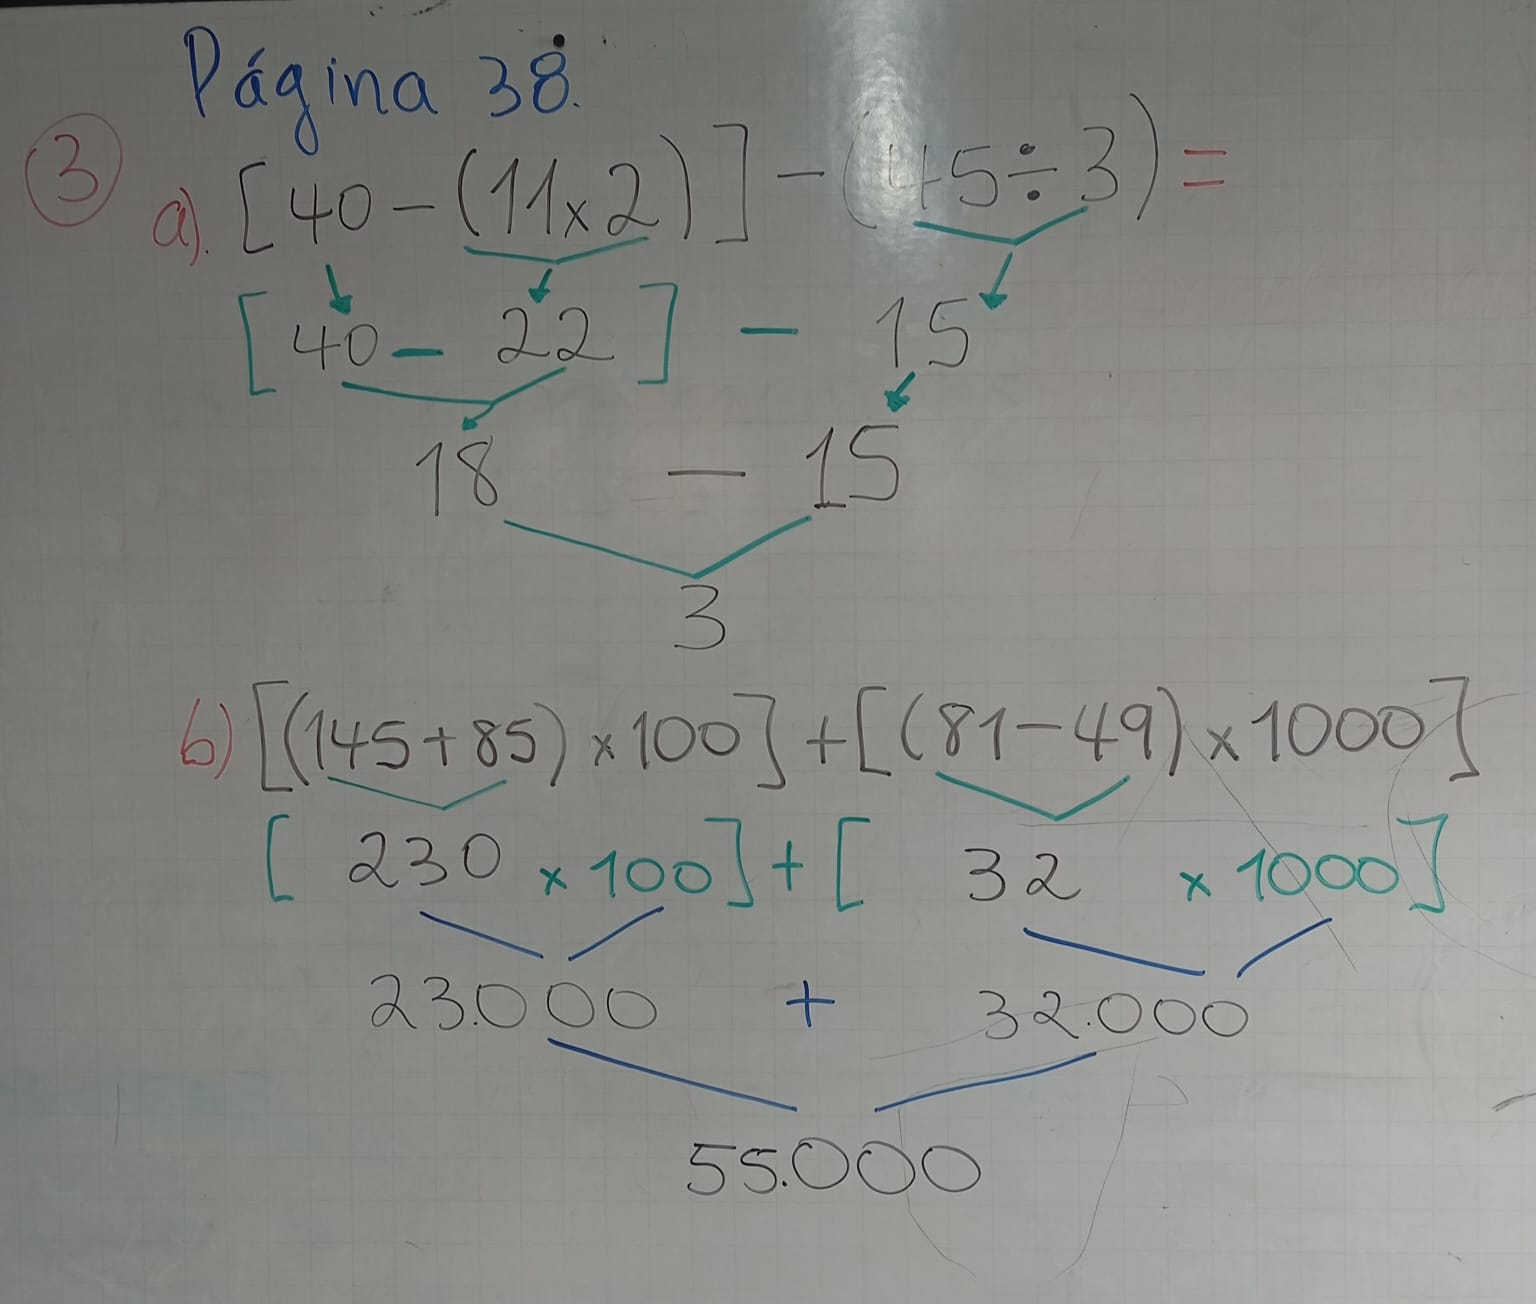 Página 38.
③ a). [40-(11x2)]-(45÷3)=
[40- 22] - 15
18 - 15
3
b) [(145+85)x100]+[(81-49)x1000]
[230 x100]+[32 x1000]
23.000 + 32.000
55.000